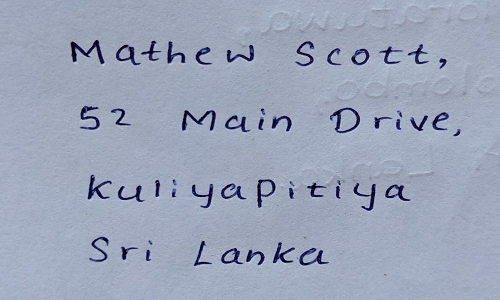 Mathew Scott,
52 Main Drive,
Kuliyapitiya
Sri Lanka